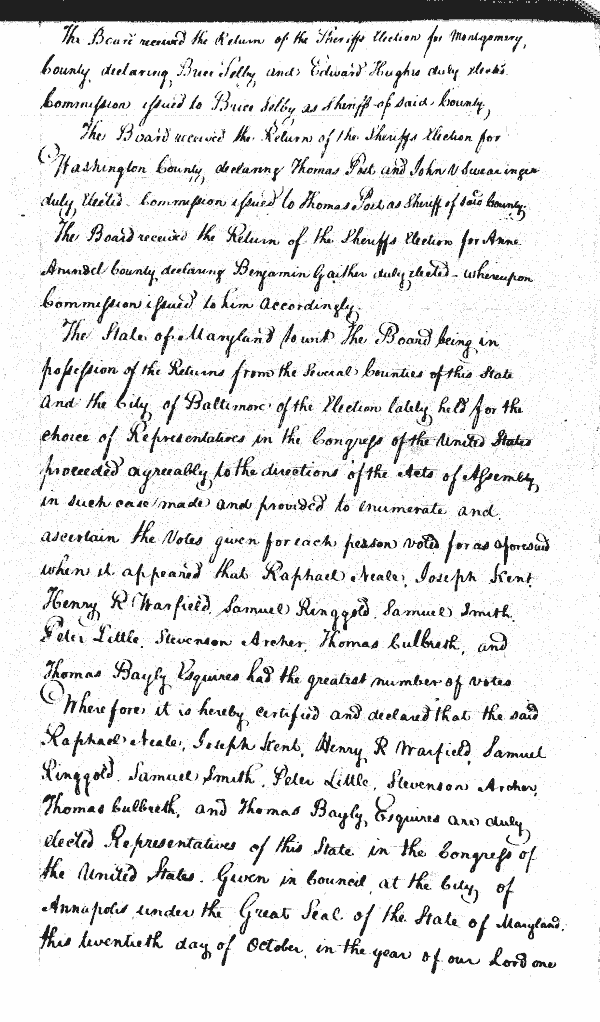 The Board received the Return of the Sheriffs Election for Montgomery,
County, declaring Brice Selby and Edward Hughs duly elected.
Commission issued to Brice Selby as Sheriff of said County,
The Board received the Return of the Sheriffs Election for
Washington County, declaring Thomas Post and John V Swearingen
duly Elected - Commission issued to Thomas Post as Sheriff of said County.
The Board received the Return of the Sheriffs Election for Anne
Arundel County declaring Benjamin Gaither duly elected - whereupon
Commission issued to him accordingly.
The State of Maryland to wit The Board being in
possession of the Returns from the Several Counties of this State
and the City of Baltimore of the Election lately held for the
choice of Representatives in the Congress of the United States
proceeded agreeably to the directions of the Acts of Assembly,
in such case made and provided to enumerate and
ascertain the Votes given for each person voted for as aforesaid
when it appeared that Raphael Neale, Joseph Kent,
Henry R Warfield, Samuel Ringgold, Samuel Smith,
Peter Little, Stevenson Archer, Thomas Culbreth, and
Thomas Bayly Esquires had the greatest number of votes
Wherefore it is hereby certified and declared that the said
Raphael Neale, Joseph Kent, Henry R Warfield, Samuel
Ringgold, Samuel Smith, Peter Little, Stevenson Archer,
Thomas Culbreth, and Thomas Bayly, Esquires are duly,
elected Representatives of this State in the Congress of
the United States. Given in Council, at the City of
Annapolis under the Great Seal of the State of Maryland.
this twentieth day of October, in the year of our Lord one